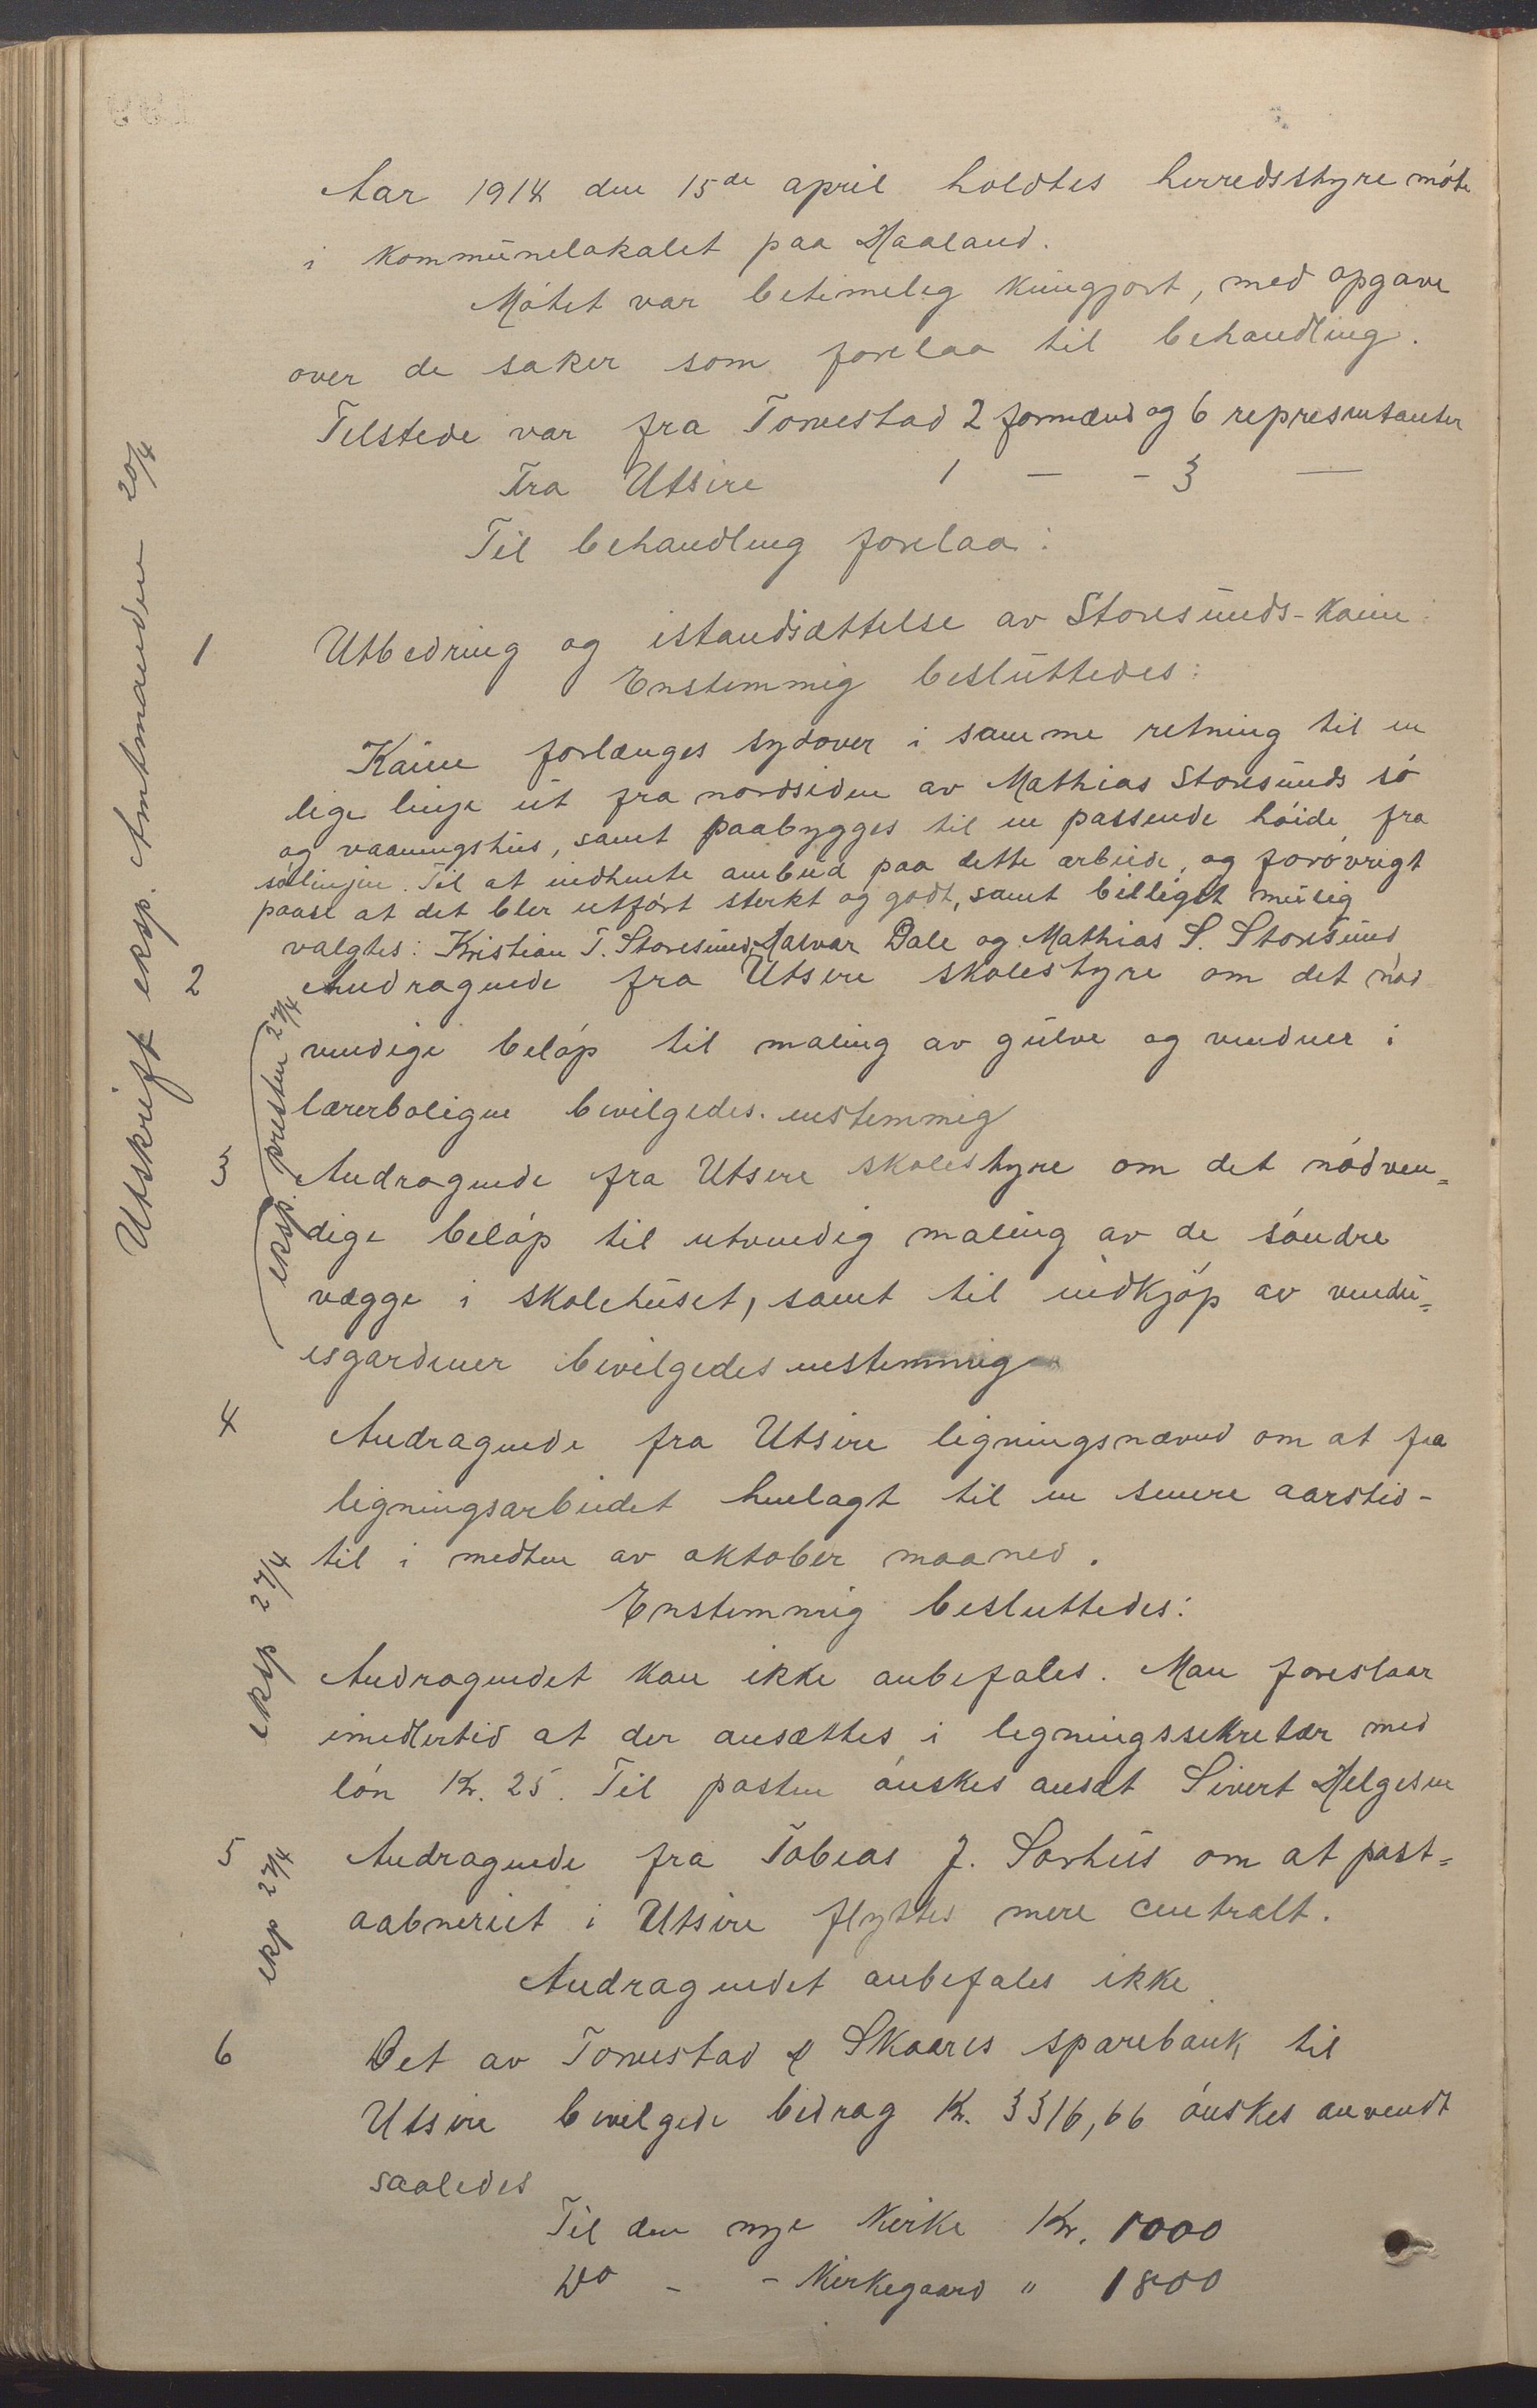 Aar 1914 den 15de april holdtes herredsstyre møte
i kommunelokalet paa Haaland.
Møtet var betimelig kungjort, med opgave
over de saker som forelaa til behandling.
Tilstede var fra Torvestad 2 formænd og 6 representanter
Fra Utsire 1 — - 3 —
Til behandling forelaa:
1 Utbedring og istandsættelse av Storesunds-kaien
Enstemmig besluttedes:
Kaien forlænges sydover i samme retning til en
lige linje ut fra nordsiden av Mathias Storesunds sø
og vaaningshus, samt paabygges til en passende høide fra
sølinjen. Til at indhente anbud paa dette arbeide, og forøvrigt
paase at det bler utført sterkt og godt, samt billigst mulig
valgtes: Kristian T. Storesund, Halvar Dale og Mathias S. Storesund
2 Andragende fra Utsire skolestyre om det nød
vendige beløp til maling av gulve og vinduer i
lærerboligen bevilgedes enstemmig
3 Andragende fra Utsire skolestyre om det nødven=
dige beløp til utvendig maling av de søndre
vægge i skolehuset, samt til indkjøp av vindu=
esgardiner bevilgedes enstemmig
4 Andragende fra Utsire ligningsnævnd om at faa
ligningsarbeidet henlagt til en senere aarstid -
til i midten av oktober maaned.
Enstemmig besluttedes:
Andragendet kan ikke anbefales. Man foreslaar
imidlertid at der ansættes i ligningssekretær med
løn Kr. 25. Til posten ønskes ansat Sivert Helgesen
5 Andragende fra Tobias J. Sørhus om at post=
aabneriet i Utsire flyttes mere centralt.
Andragendet anbefales ikke
6 Det av Torvestad & Skaares sparebank til
Utsire bevilgede bidrag Kr. 3316,66 ønskes anvendt
saaledes
Til den nye Kirke Kr. 1000
Do - - Kirkegaard " 1800
Utskrift eksp. Amtmanden 20/4
eksp. presten 27/4
eksp 27/4
ekp 27/4